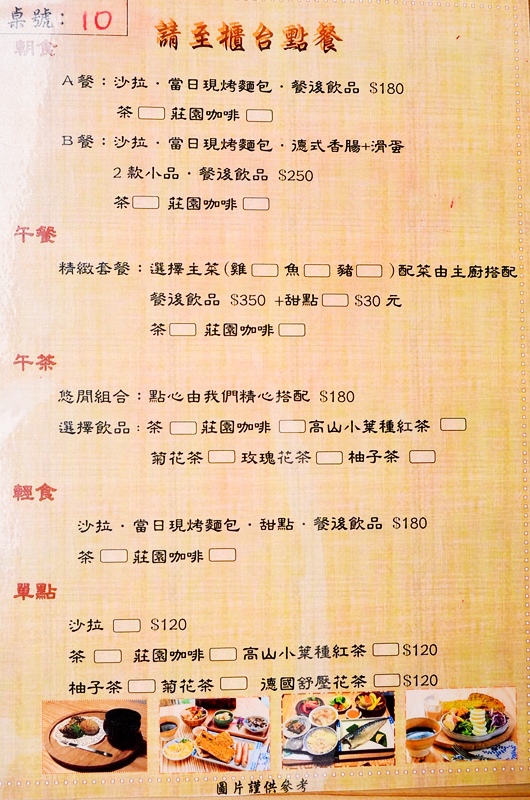 桌號：10
請至櫃台點餐
朝食
A餐：沙拉．當日現烤麵包．餐後飲品 $180
茶 莊園咖啡
B餐：沙拉．當日現烤麵包．德式香腸+滑蛋
2款小品．餐後飲品 $250
茶 莊園咖啡
午餐
精緻套餐：選擇主菜(雞 魚 豬 )配菜由主廚搭配
餐後飲品 $350 +甜點 $30元
茶 莊園咖啡
午茶
悠閒組合：點心由我們精心搭配 $180
選擇飲品：茶 莊園咖啡 高山小葉種紅茶
菊花茶 玫瑰花茶 柚子茶
輕食
沙拉．當日現烤麵包．甜點．餐後飲品 $180
茶 莊園咖啡
單點
沙拉 $120
茶 莊園咖啡 高山小葉種紅茶 $120
柚子茶 菊花茶 德國舒壓花茶 $120
圖片謹供參考